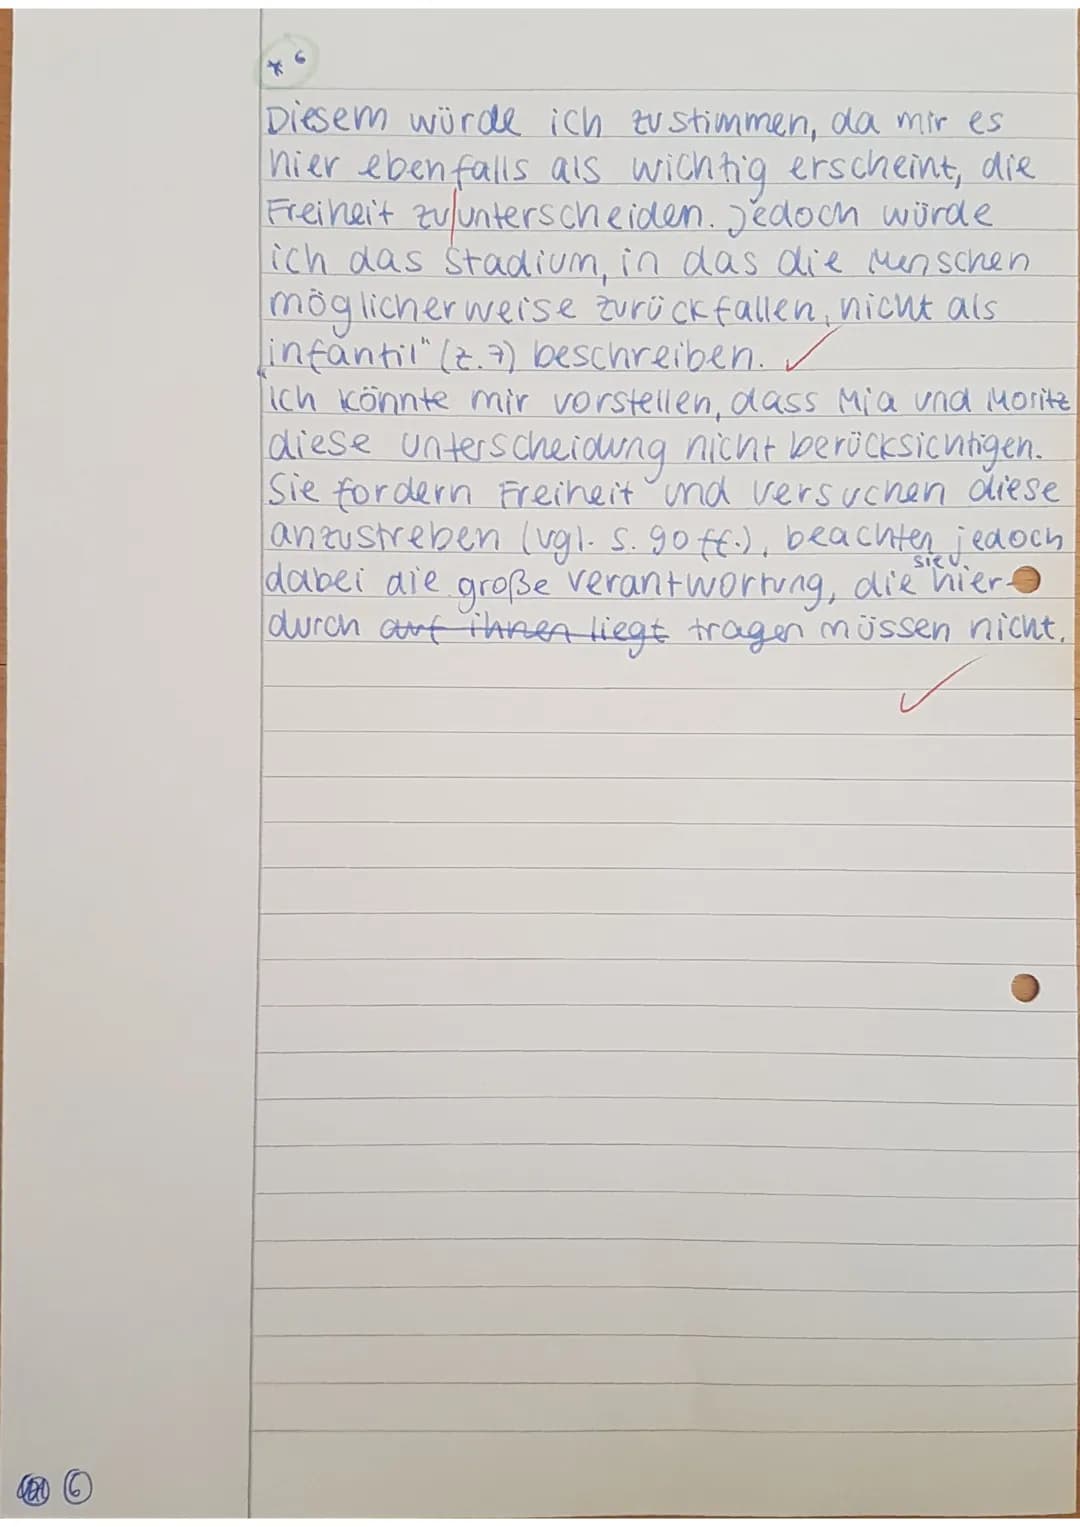 * 6
Diesem würde ich zustimmen, da mir es
hier ebenfalls als wichtig erscheint, die
Freiheit zu|unterscheiden. Jedoch würde
ich das Stadium, in das die Menschen
möglicherweise zurückfallen, nicht als
„infantil" (Z. 7) beschreiben. ✓
Ich könnte mir vorstellen, dass Mia und Moritz
diese Unterscheidung nicht berücksichtigen.
Sie fordern Freiheit und versuchen diese
anzustreben (vgl. S. 90 ff.), beachten jedoch
dabei die große Verantwortung, die sie hier-
durch auf ihnen liegt tragen müssen nicht.
✓
6